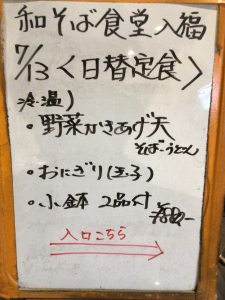 和そば食堂入福
7/13<日替定食>
冷・温)
・野菜かきあげ天
そば・うどん
・おにぎり(玉子)
・小鉢 2品付
入口こちら